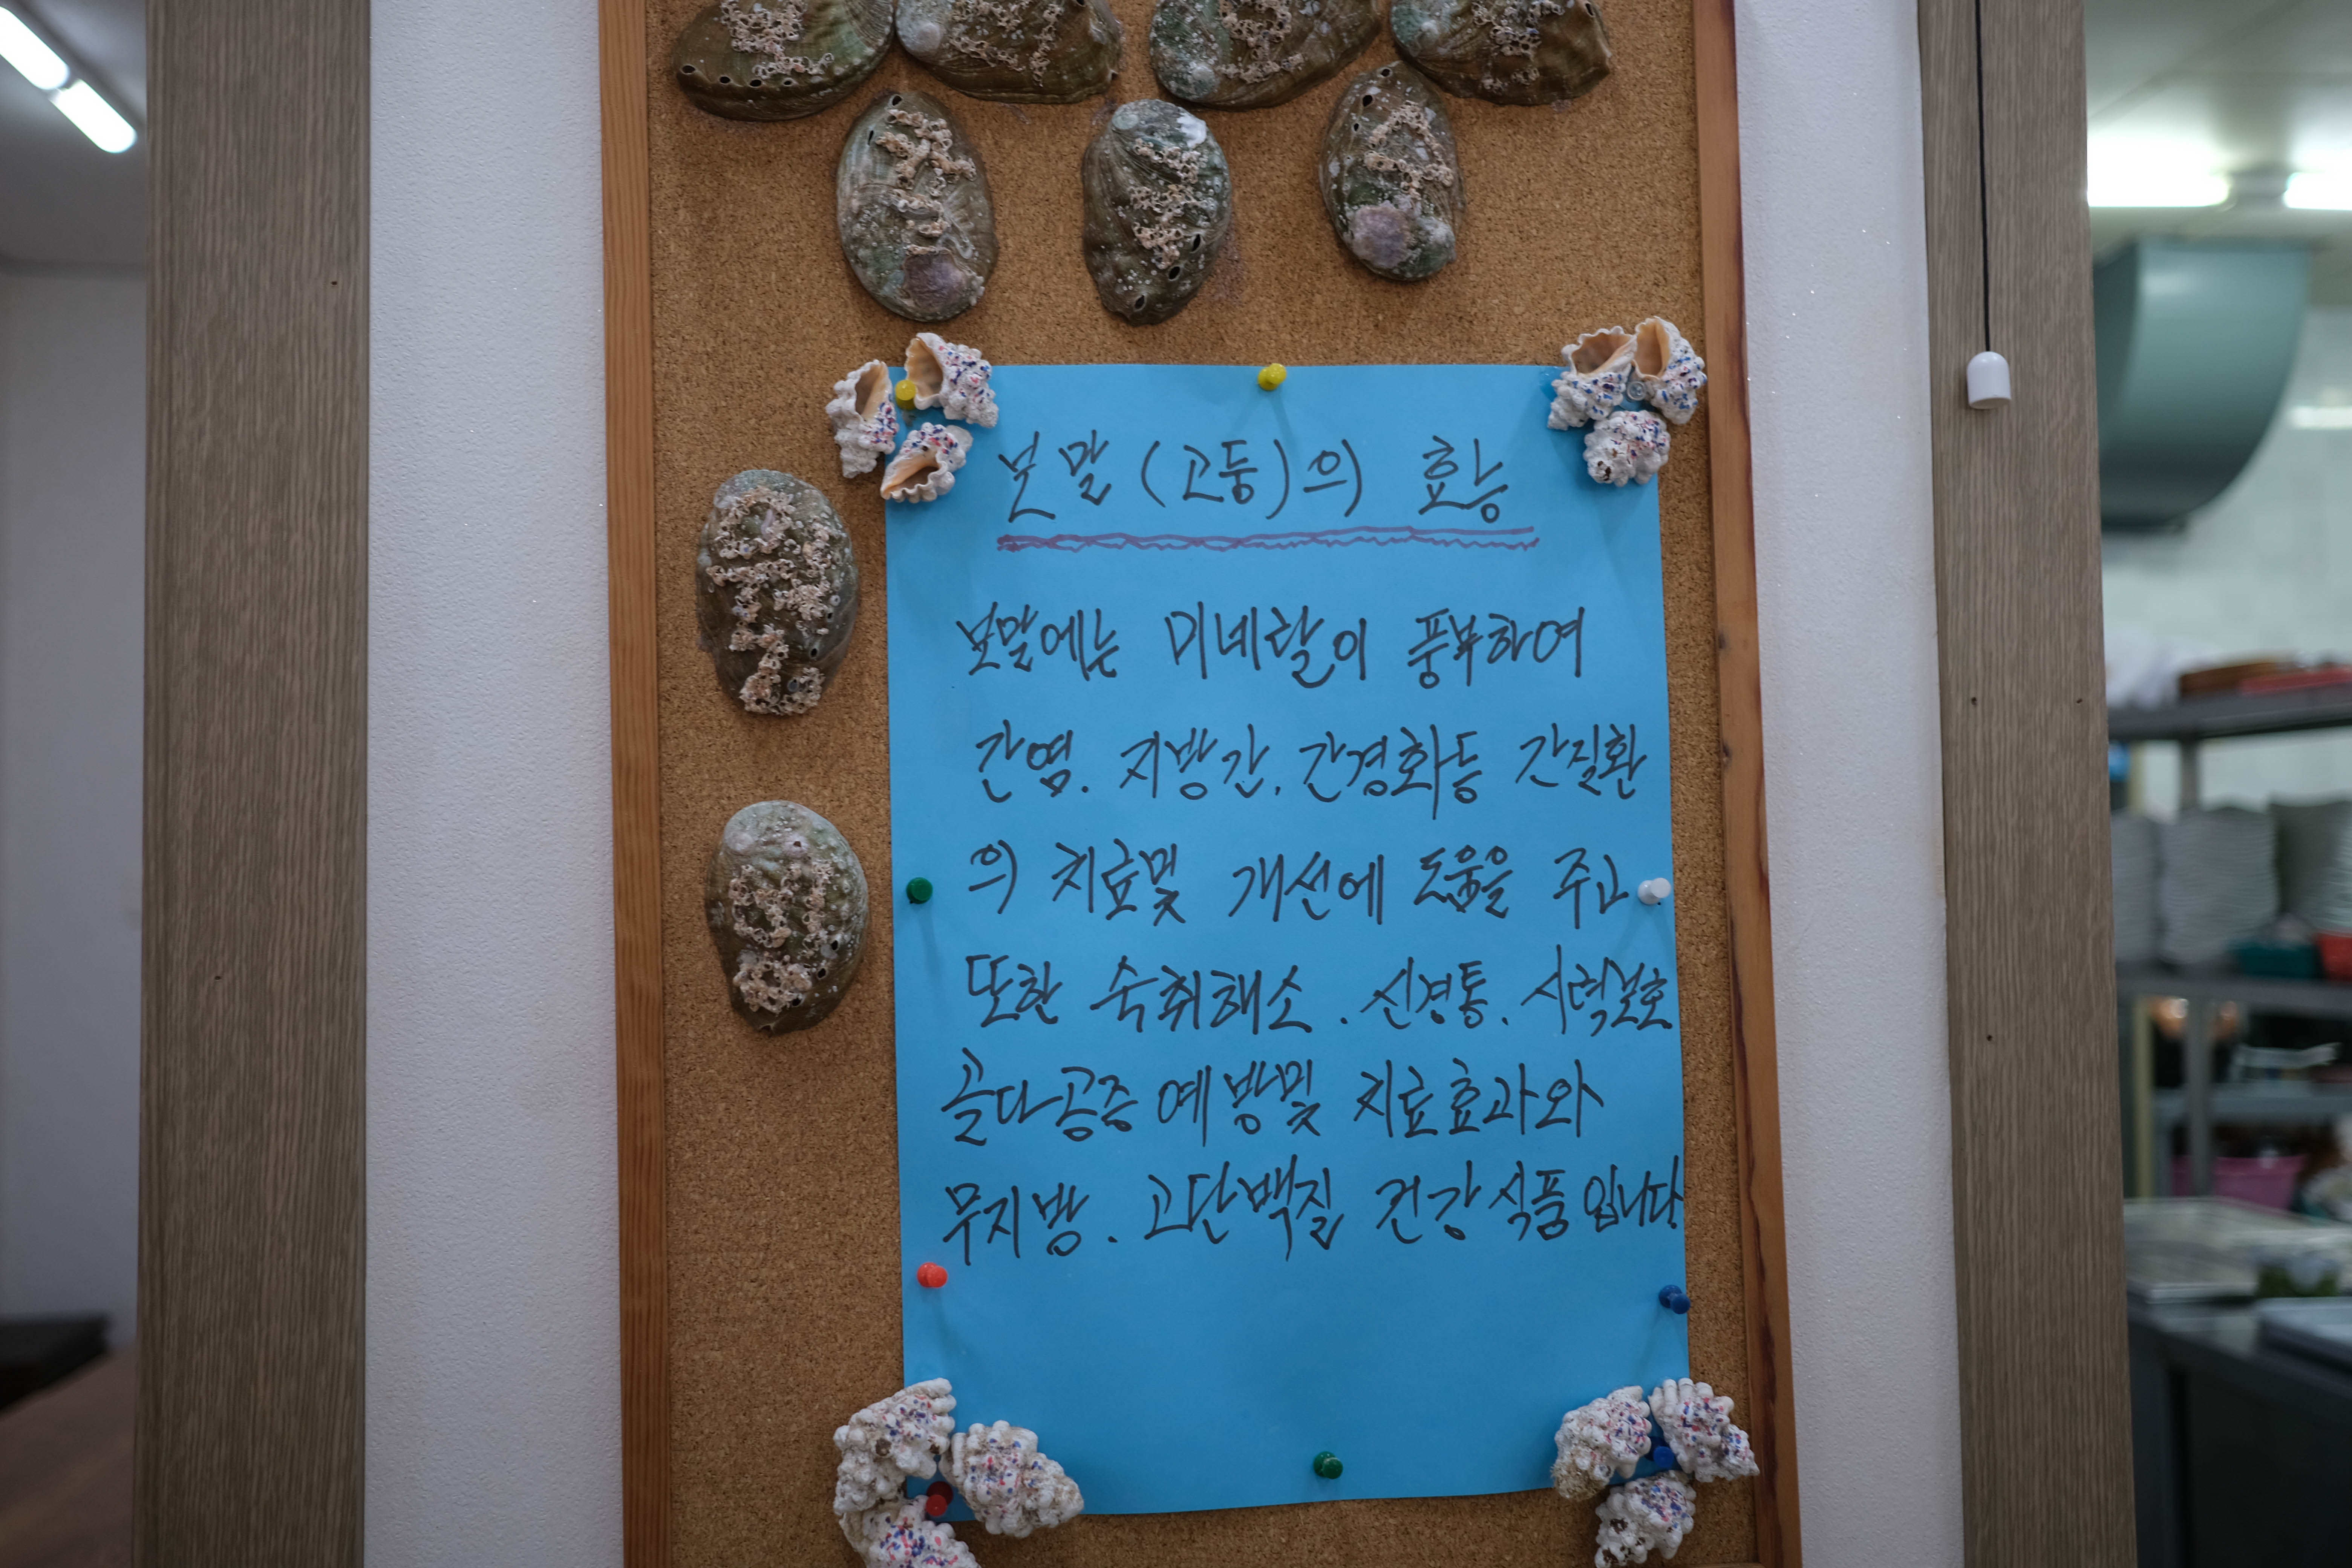 보말(고동)의 효능
보말에는 미네랄이 풍부하여
간염. 지방간. 간경화등 간질환
의 치료및 개선에 도움을 주고
또한 숙취해소. 신경통. 시력보호
골다공증 예방및 치료효과와
무지방. 고단백질 건강식품입니다